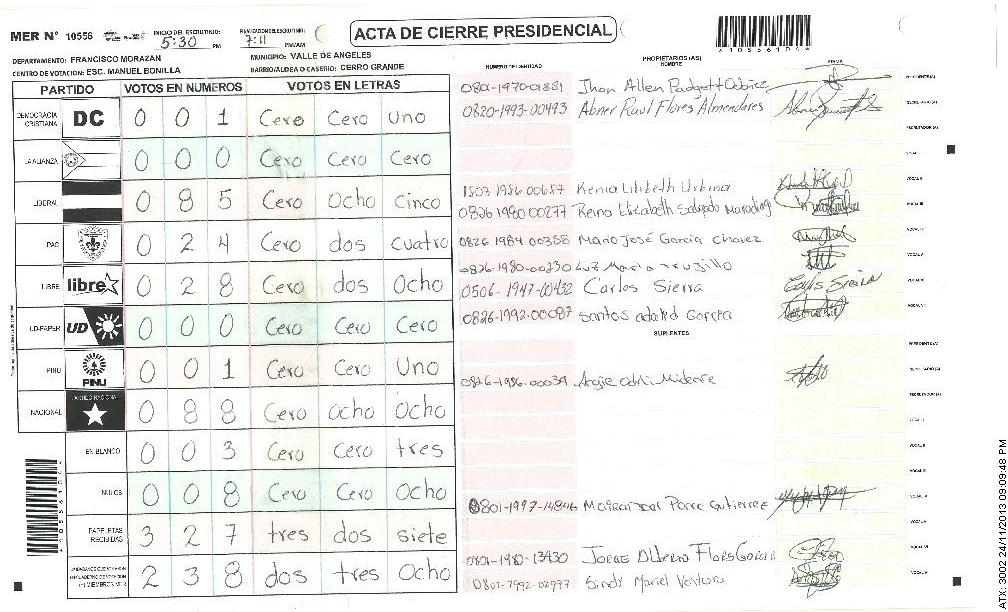 MER N° 10556 INICIO DEL ESCRUTINIO: 5:30 PM 7:11 PM/AM
ACTA DE CIERRE PRESIDENCIAL
DEPARTAMENTO: FRANCISCO MORAZAN MUNICIPIO: VALLE DE ANGELES
CENTRO DE VOTACION: ESC. MANUEL BONILLA BARRIO/ALDEA O CASERIO: CERRO GRANDE
PARTIDO VOTOS EN NUMEROS VOTOS EN LETRAS
DEMOCRACIA CRISTIANA DC 0 0 1 Cero Cero uno
LA ALIANZA 0 0 0 Cero Cero Cero
LIBERAL 0 8 5 Cero Ocho Cinco
PAC 0 2 4 Cero dos cuatro
LIBRE libre 0 2 8 Cero dos Ocho
UD-FAPER UD 0 0 0 Cero Cero Cero
PINU PINU 0 0 1 Cero Cero Uno
NACIONAL 0 8 8 Cero Ocho Ocho
EN BLANCO 0 0 3 Cero Cero tres
NULOS 0 0 8 Cero Cero Ocho
PAPELETAS RECIBIDAS 3 2 7 tres dos siete
2 3 8 dos tres Ocho
NUMERO DE IDENTIDAD PROPIETARIOS (AS) NOMBRE FIRMA
Jhon Allen Padgett
0820-1993-00493 Abner Raul Flores Almendares
Kenia Lilibeth Urbina
0826 1980 00277 Reina Elizabeth Salgado
0826 1984 00358 Mario José Garcia Chavez
0826-1980-00230 Luz Maria Trujillo
0506-1947-00432 Carlos Sierra Carlos Sierra
0826-1992-00087 Santos Garcia
SUPLENTES
0826-1986-00039 Angie
0801-1997-14846 Ponce Gutierrez
0801-1980-13430 JORGE FLORES GARCIA
Sindy Mariel Ventura
ATX: 3002 24/11/2013 09:09:48 PM